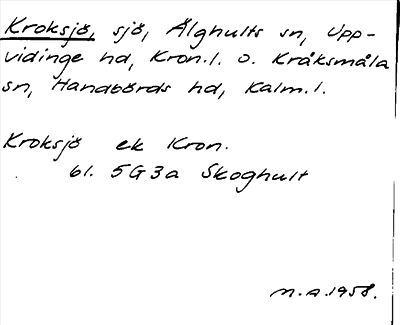 Kroksjö, sjö, Älghults sn, Upp-
vidinge hd, Kron.l. o. Kråksmåla
sn, Handbörds hd, Kalm.l.
Kroksjö ek Kron.
bl. 5G3a Skoghult
M.A.1958.